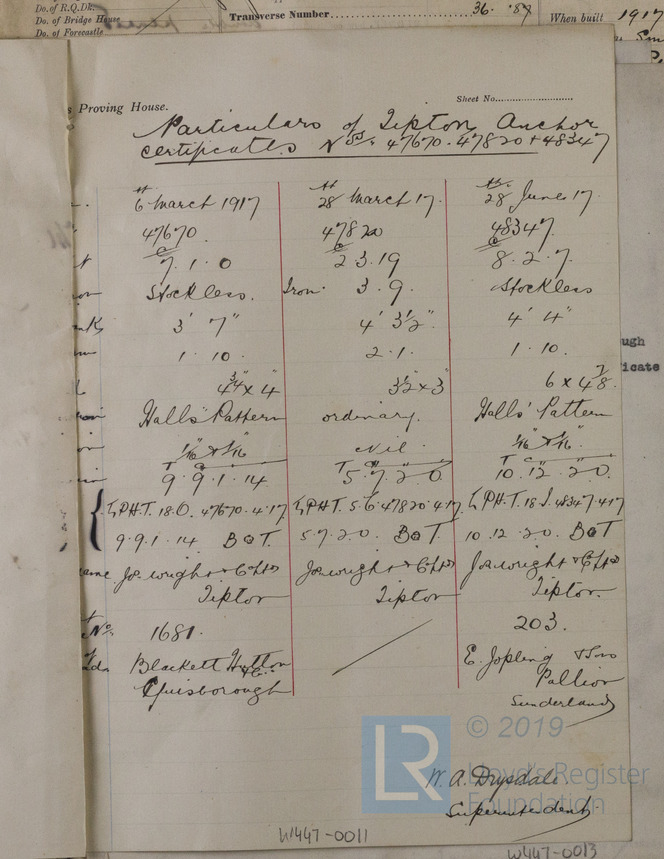 Do. of R.Q.Dk.
Do. of Bridge House
Do. of Forecastle
Transverse Number 36. '87
When built 1917
Proving House.
Sheet No.
Particulars of Tipton Anchor
certificates Nos. 47670. 47820 & 48347
6th March 1917 28th March 17. 28th June 17.
47670. 47820 48347.
c c c
7. 1. 0 2. 3. 19 8. 2. 7.
Stockless. Iron. 3. 9. Stockless
3' 7" 4' 3½" 4' 4"
1. 10. 2. 1. 1. 10.
4¾" x 4" 3½" x 3" 6 x 4⅞.
Halls' Pattern ordinary. Halls' Pattern
1/16" & 1/16" Nil. 1/16" & 1/16"
9. 9. 1. 14 5. 7. 2. 0. 10. 12. 2. 0.
L.P.H.T. 18.O. 47670. 4.17. L.P.H.T. 5.6. 47820. 4.17. L.P.H.T. 18.I. 48347. 4.17
9.9.1.14 BOT. 5.7.2.0. BOT. 10.12.2.0. BOT
Jos. Wright & Co Ltd Jos. Wright & Co Ltd Jos. Wright & Co Ltd
Tipton Tipton Tipton.
No. 1681. 203.
Blackett Hutton & Co. E. Jopling & Sons
Guisborough Pallion
Sunderland
ugh
icate
LR © 2019
Lloyd's Register
Foundation
W. A. Drysdale.
Superintendent
W447-0011
W447-0013